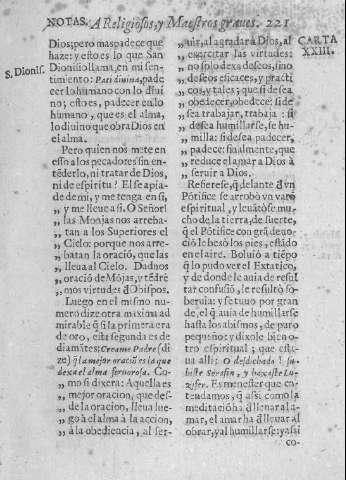 NOTAS. A Religiosos, y Maestros graues. 221
CARTA
XXIII.
S. Dionis.
Dios; pero mas padece que
haze: y esto es lo que San
Dionisio llama, en mi sen-
timiento: Pati diuina, pade
cer lo humano con lo diui
no; esto es, padecer en lo
humano, que es el alma,
lo diuino que obra Dios en
el alma.
Pero quien nos mete en
esso a los pecadores sin en-
tẽderlo, ni tratar de Dios,
ni de espiritu? El se apia-
„ de de mi, y me tenga en sì,
„ y me lleue a sì. O Señor!
„ las Monjas nos arreba-
„ tan a los Superiores el
„ Cielo: porque nos arre-
„ batan la oraciõ, que las
„ lleua al Cielo. Dadnos
„ oraciõ de Mõjas, y tẽdrẽ
„ mos virtudes d̃ Obispos.
Luego en el mismo nu-
mero dize otra maxima ad
mirable q̃ si la primera era
de oro, esta segunda es de
diamãtes: Creame Padre (di
ze) q̃ la mejor oraciõ es la que
dexa el alma feruorosa. Co-
mo si dixera: Aquella es
mejor oracion, que des-
de la oracion, lleua lue-
go à el alma à la accion,
à la obediencia, al ser-
„ uir, al agradar à Dios, al
„ exercitar las virtudes:
„ no solo dexa deseos, sino
„ deseos eficaces, y practi
„ cos, y tales; que si desea
„ obedecer, obedece: si de
„ sea trabajar, trabaja: si
„ desea humillarse, se hu-
„ milla: si desea padecer,
„ padece: finalmente, que
„ reduce el amar a Dios à
„ seruir a Dios.
Refierese, q̃ delante d̃ vn
Põtifice se arrobò vn varõ
espiritual, y leuãtòse mu-
cho de la tierra, de suerte,
q̃ el Põtifice con grã deuo-
ciõ le besò los pies, estãdo
en el aire. Boluiò a tiẽpo
q̃ lo pudo ver el Extatico,
y de donde le auia de resul
tar confusiõ, le resultò so-
beruia: y se tuuo por gran
de, el q̃ auia de humillarse
hasta los abismos, de puro
pequeño: y dixole bien o-
tro espiritual; que esta-
ua alli: O desdichado! su-
biste Serafin, y baxaste Lu-
zifer. Es menester que en-
tendamos, q̃ assi como la
meditaciõ ha d̃ lleuar al a-
mar, el amar ha d̃ lleuar al
obrar, y al humillarse: y assi
co-